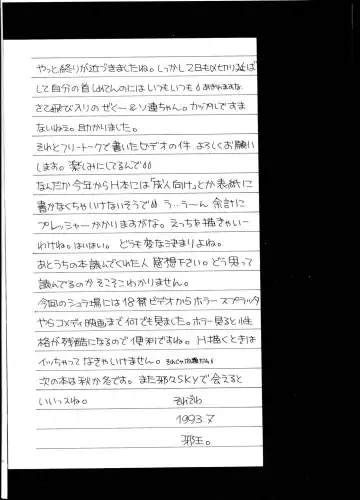 やっと終りが近づきましたね。しっかし2日も〆切り延ば
して自分の首しめてんのにはいつもいつも
さて飛び入りのぜくー&ソ連ちゃん。カップルですま
ないねえ。助かりました。
それとフリートークで書いたビデオの件、よろしくお願い
しまお。楽しみにしてるんで
なんだか今年からH本には「成人向け」とか表紙に
書かなくちゃいけないそうで う…うーん 余計に
プレッシャーかかりますがな。えっちを描きゃいー
わけね。はいはい。どうも変な決まりよね。
あとうちの本読んでくれた人 感想下さい。どう思って
読んでるのか そこそこわかりません。
今回のシュラ場には18禁ビデオからホラー スプラッタ
やらコメディ映画まで何でも見ました。ホラー見ると性
格が残酷になるので便利ですね。H描くときは
イッちゃってなきゃいけません。
次の本は秋か冬です。また邪々SKYで会えると
いいっスね。
1993.7
邪王。